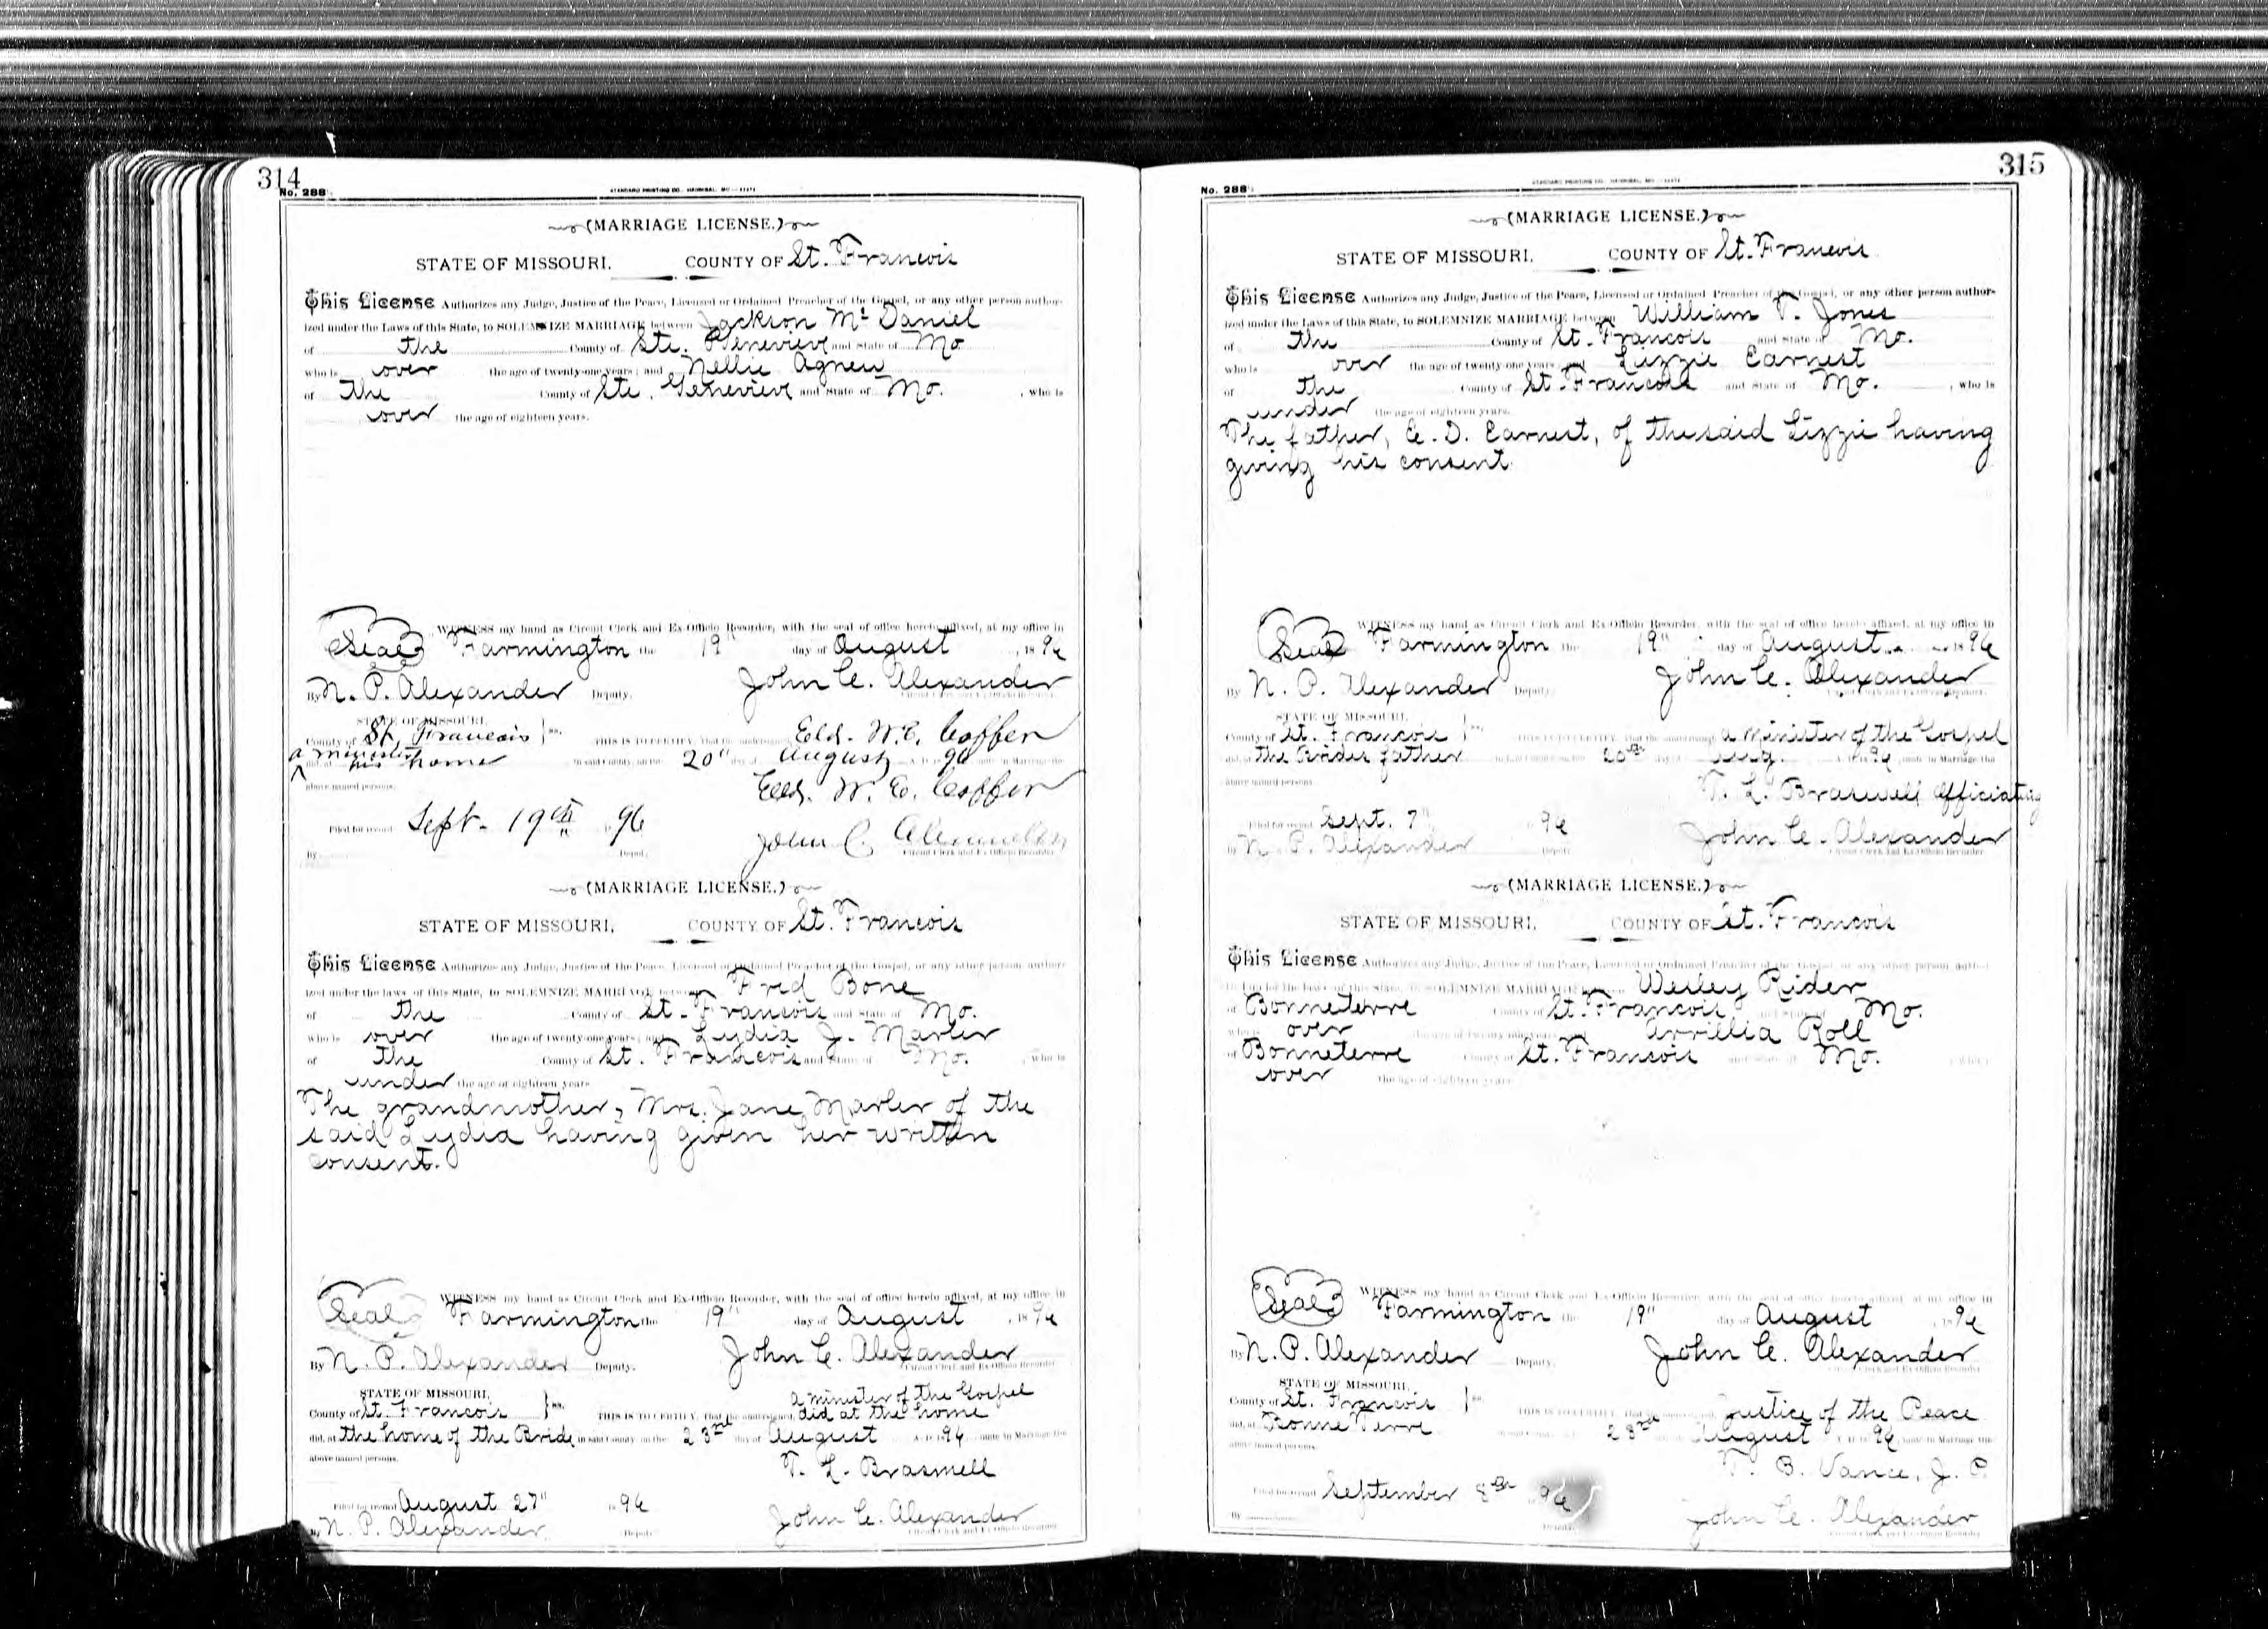 314
No. 288
STANDARD PRINTING CO., HANNIBAL, MO.
(MARRIAGE LICENSE.)
STATE OF MISSOURI, COUNTY OF St. Francois
This License Authorizes any Judge, Justice of the Peace, Licensed or Ordained Preacher of the Gospel, or any other person author-
ized under the Laws of this State, to SOLEMNIZE MARRIAGE between Jackson Mc Daniel
of the County of Ste. Genevieve and State of Mo
who is over the age of twenty-one years; and Nellie Agnew
of the County of Ste. Genevieve and State of Mo. , who is
over the age of eighteen years.
WITNESS my hand as Circuit Clerk and Ex-Officio Recorder, with the seal of office hereto affixed, at my office in
Seal Farmington the 19" day of August , 18 96
By N. P. Alexander Deputy. John C. Alexander
STATE OF MISSOURI,
County of St. Francois } ss. THIS IS TO CERTIFY, That the undersigned Eld. W. C. Coffer
a minister
did, at his home in said County, on the 20" day of August A. D. 1896 unite in Marriage the
above named persons. Eld. W. C. Coffer
Filed for record Sept. 19th 1896
By Deputy. John C. Alexander
Circuit Clerk and Ex-Officio Recorder
(MARRIAGE LICENSE.)
STATE OF MISSOURI, COUNTY OF St. Francois
This License Authorizes any Judge, Justice of the Peace, Licensed or Ordained Preacher of the Gospel, or any other person author-
ized under the laws of this State, to SOLEMNIZE MARRIAGE between Fred Bone
of the County of St. Francois and State of Mo.
who is over the age of twenty-one years; and Lydia J. Marler
of the County of St. Francois and State of Mo. , who is
under the age of eighteen years
The grandmother, Mrs. Jane Marler of the
said Lydia having given her written
consent.
WITNESS my hand as Circuit Clerk and Ex-Officio Recorder, with the seal of office hereto affixed, at my office in
Seal Farmington the 19" day of August , 18 96
By N. P. Alexander Deputy. John C. Alexander
Circuit Clerk and Ex-Officio Recorder
STATE OF MISSOURI, a minister of the Gospel
County of St. Francois } ss. THIS IS TO CERTIFY, That the undersigned, did at the home
did, at the home of the Bride in said County on the 23rd day of August A. D. 1896 unite in Marriage the
above named persons. T. L. Braswell
Filed for record August 27" 1896
By N. P. Alexander Deputy John C. Alexander
Circuit Clerk and Ex-Officio Recorder
315
No. 288
STANDARD PRINTING CO., HANNIBAL, MO.
(MARRIAGE LICENSE.)
STATE OF MISSOURI, COUNTY OF St. Francois
This License Authorizes any Judge, Justice of the Peace, Licensed or Ordained Preacher of the Gospel, or any other person author-
ized under the Laws of this State, to SOLEMNIZE MARRIAGE between William T. Jones
of the County of St. Francois and State of Mo.
who is over the age of twenty-one years and Lizzie Earnest
of the County of St. Francois and State of Mo. , who is
under the age of eighteen years.
The father, C. D. Earnest, of the said Lizzie having
giving his consent.
WITNESS my hand as Circuit Clerk and Ex-Officio Recorder, with the seal of office hereto affixed, at my office in
Seal Farmington the 19" day of August 18 96
By N. P. Alexander Deputy John C. Alexander
STATE OF MISSOURI,
County of St. Francois } ss. THIS IS TO CERTIFY, That the undersigned a minister of the Gospel
did, at the Brides father in said County on the 20th day of Aug. A. D. 1896 unite in Marriage the
above named persons T. L. Braswell officiating
Filed for record Sept. 7" 1896
By N. P. Alexander Deputy John C. Alexander
Circuit Clerk and Ex-Officio Recorder
(MARRIAGE LICENSE.)
STATE OF MISSOURI, COUNTY OF St. Francois
This License Authorizes any Judge, Justice of the Peace, Licensed or Ordained Preacher of the Gospel, or any other person author-
ized under the laws of this State, to SOLEMNIZE MARRIAGE between Wesley Rider
of Bonneterre County of St. Francois and State of Mo.
who is over the age of twenty-one years and Arrillia Roll
of Bonneterre County of St. Francois and State of Mo. who is
over the age of eighteen years
WITNESS my hand as Circuit Clerk and Ex-Officio Recorder, with the seal of office hereto affixed, at my office in
Seal Farmington the 19" day of August , 18 96
By N. P. Alexander Deputy. John C. Alexander
STATE OF MISSOURI,
County of St. Francois } ss. THIS IS TO CERTIFY, That the undersigned Justice of the Peace
did, at Bonne Terre in said County on the 23rd day of August A. D. 1896 unite in Marriage the
above named persons. T. B. Vance, J. P.
Filed for record September 8th 1896
By Deputy John C. Alexander
Circuit Clerk and Ex-Officio Recorder